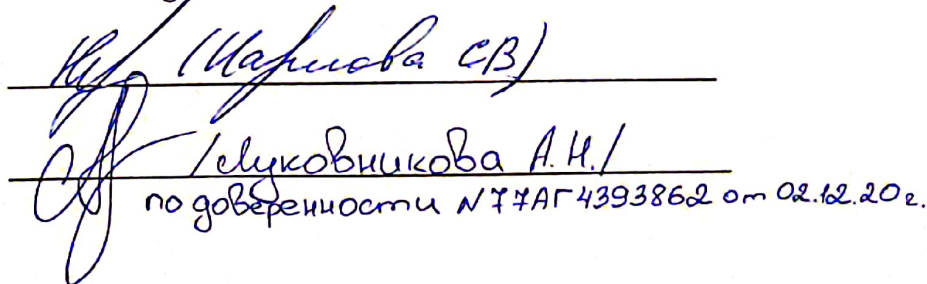 (Шарпова СВ)
/Луковникова А.Н./
по доверенности N77АГ4393862 от 02.12.20г.